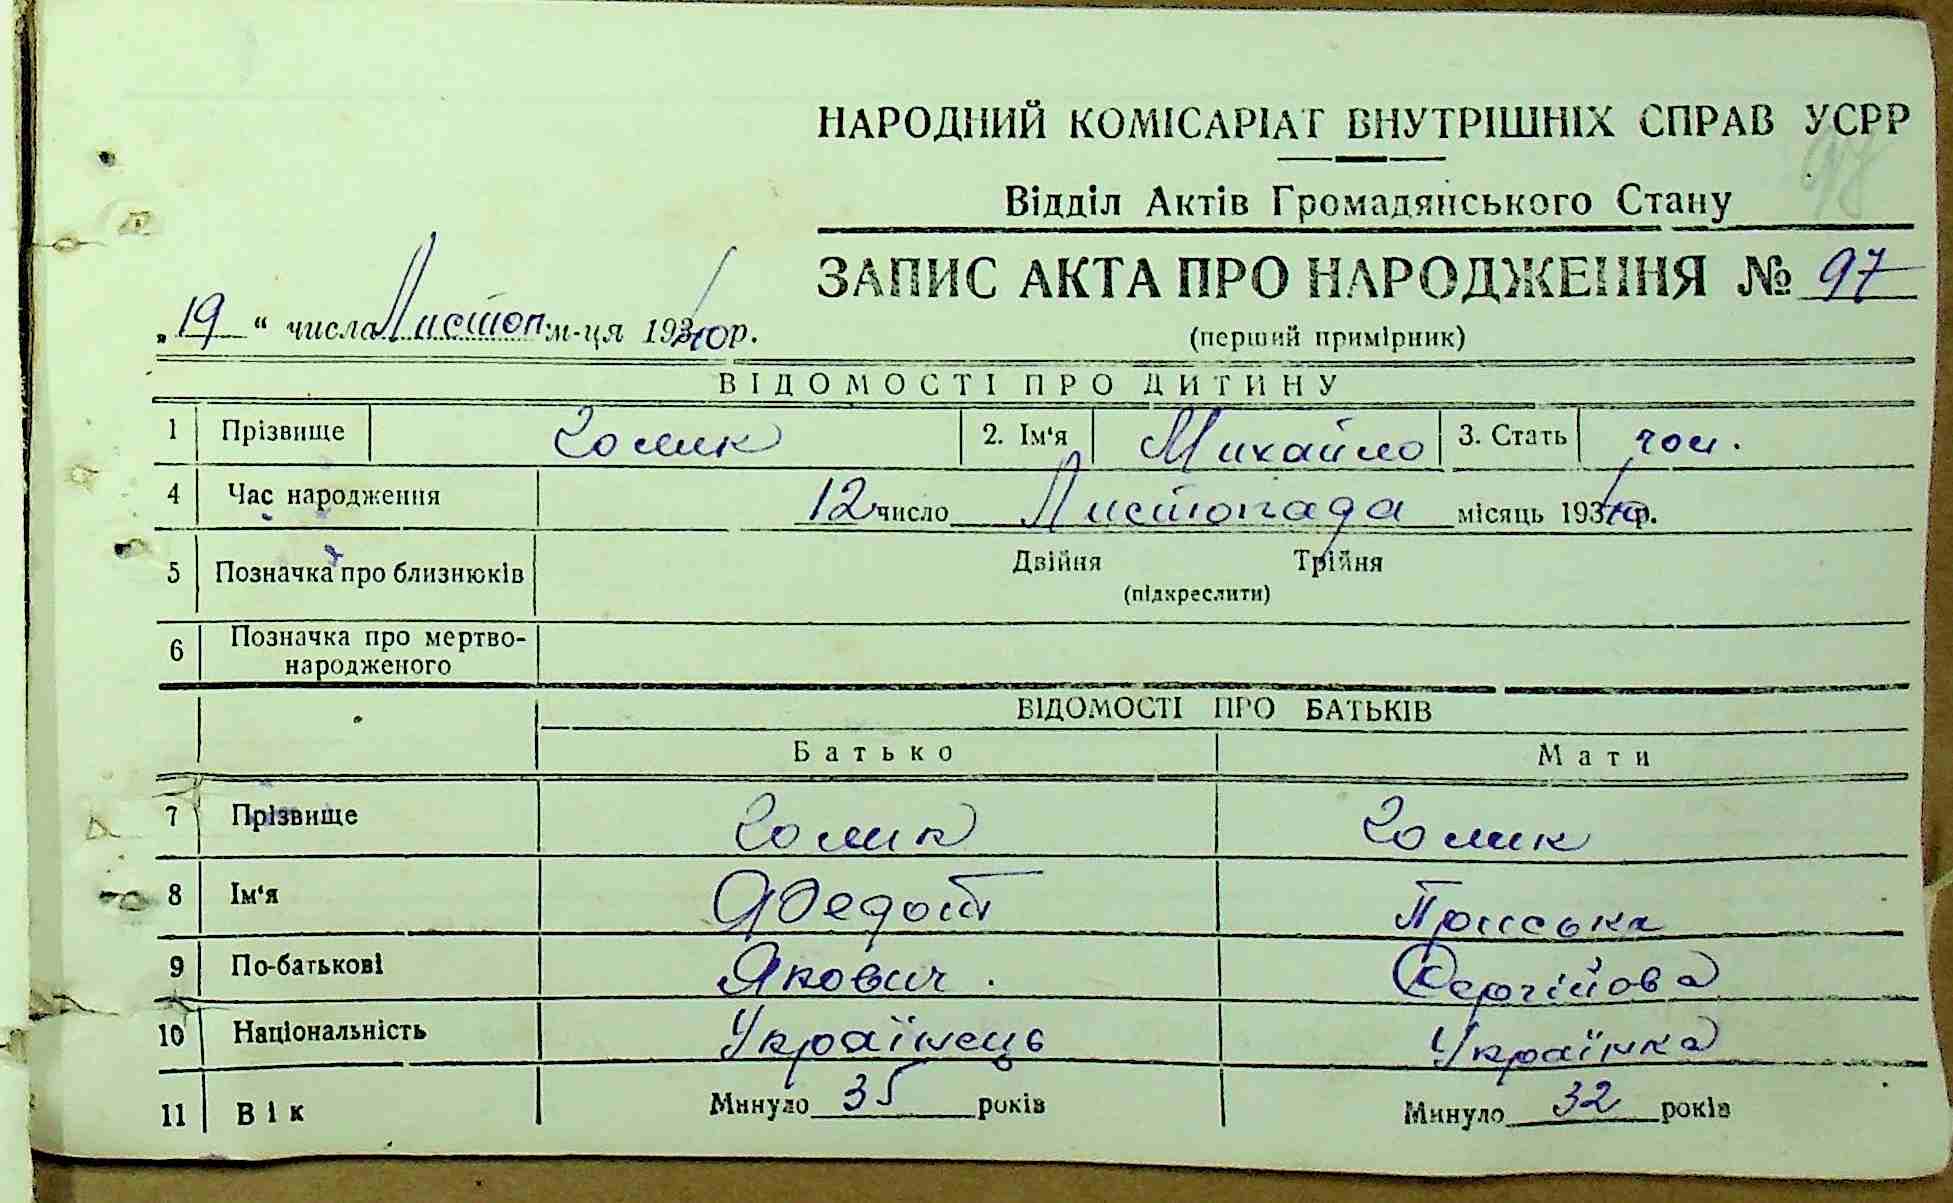 НАРОДНИЙ КОМІСАРІАТ ВНУТРІШНІХ СПРАВ УСРР
98
Відділ Актів Громадянського Стану
ЗАПИС АКТА ПРО НАРОДЖЕННЯ № 97
„19“ числа Листоп. м-ця 1940р.
(перший примірник)
ВІДОМОСТІ ПРО ДИТИНУ
1 Прізвище Гомик 2. Ім'я Михайло 3. Стать чол.
4 Час народження 12 число Листопада місяць 1940р.
5 Позначка про близнюків Двійня Трійня
(підкреслити)
6 Позначка про мертво-
народженого
ВІДОМОСТІ ПРО БАТЬКІВ
Батько Мати
7 Прізвище Гомик Гомик
8 Ім'я Федот Приська
9 По-батькові Якович. Сергійова
10 Національність Українець Українка
11 Вік Минуло 35 років Минуло 32 років